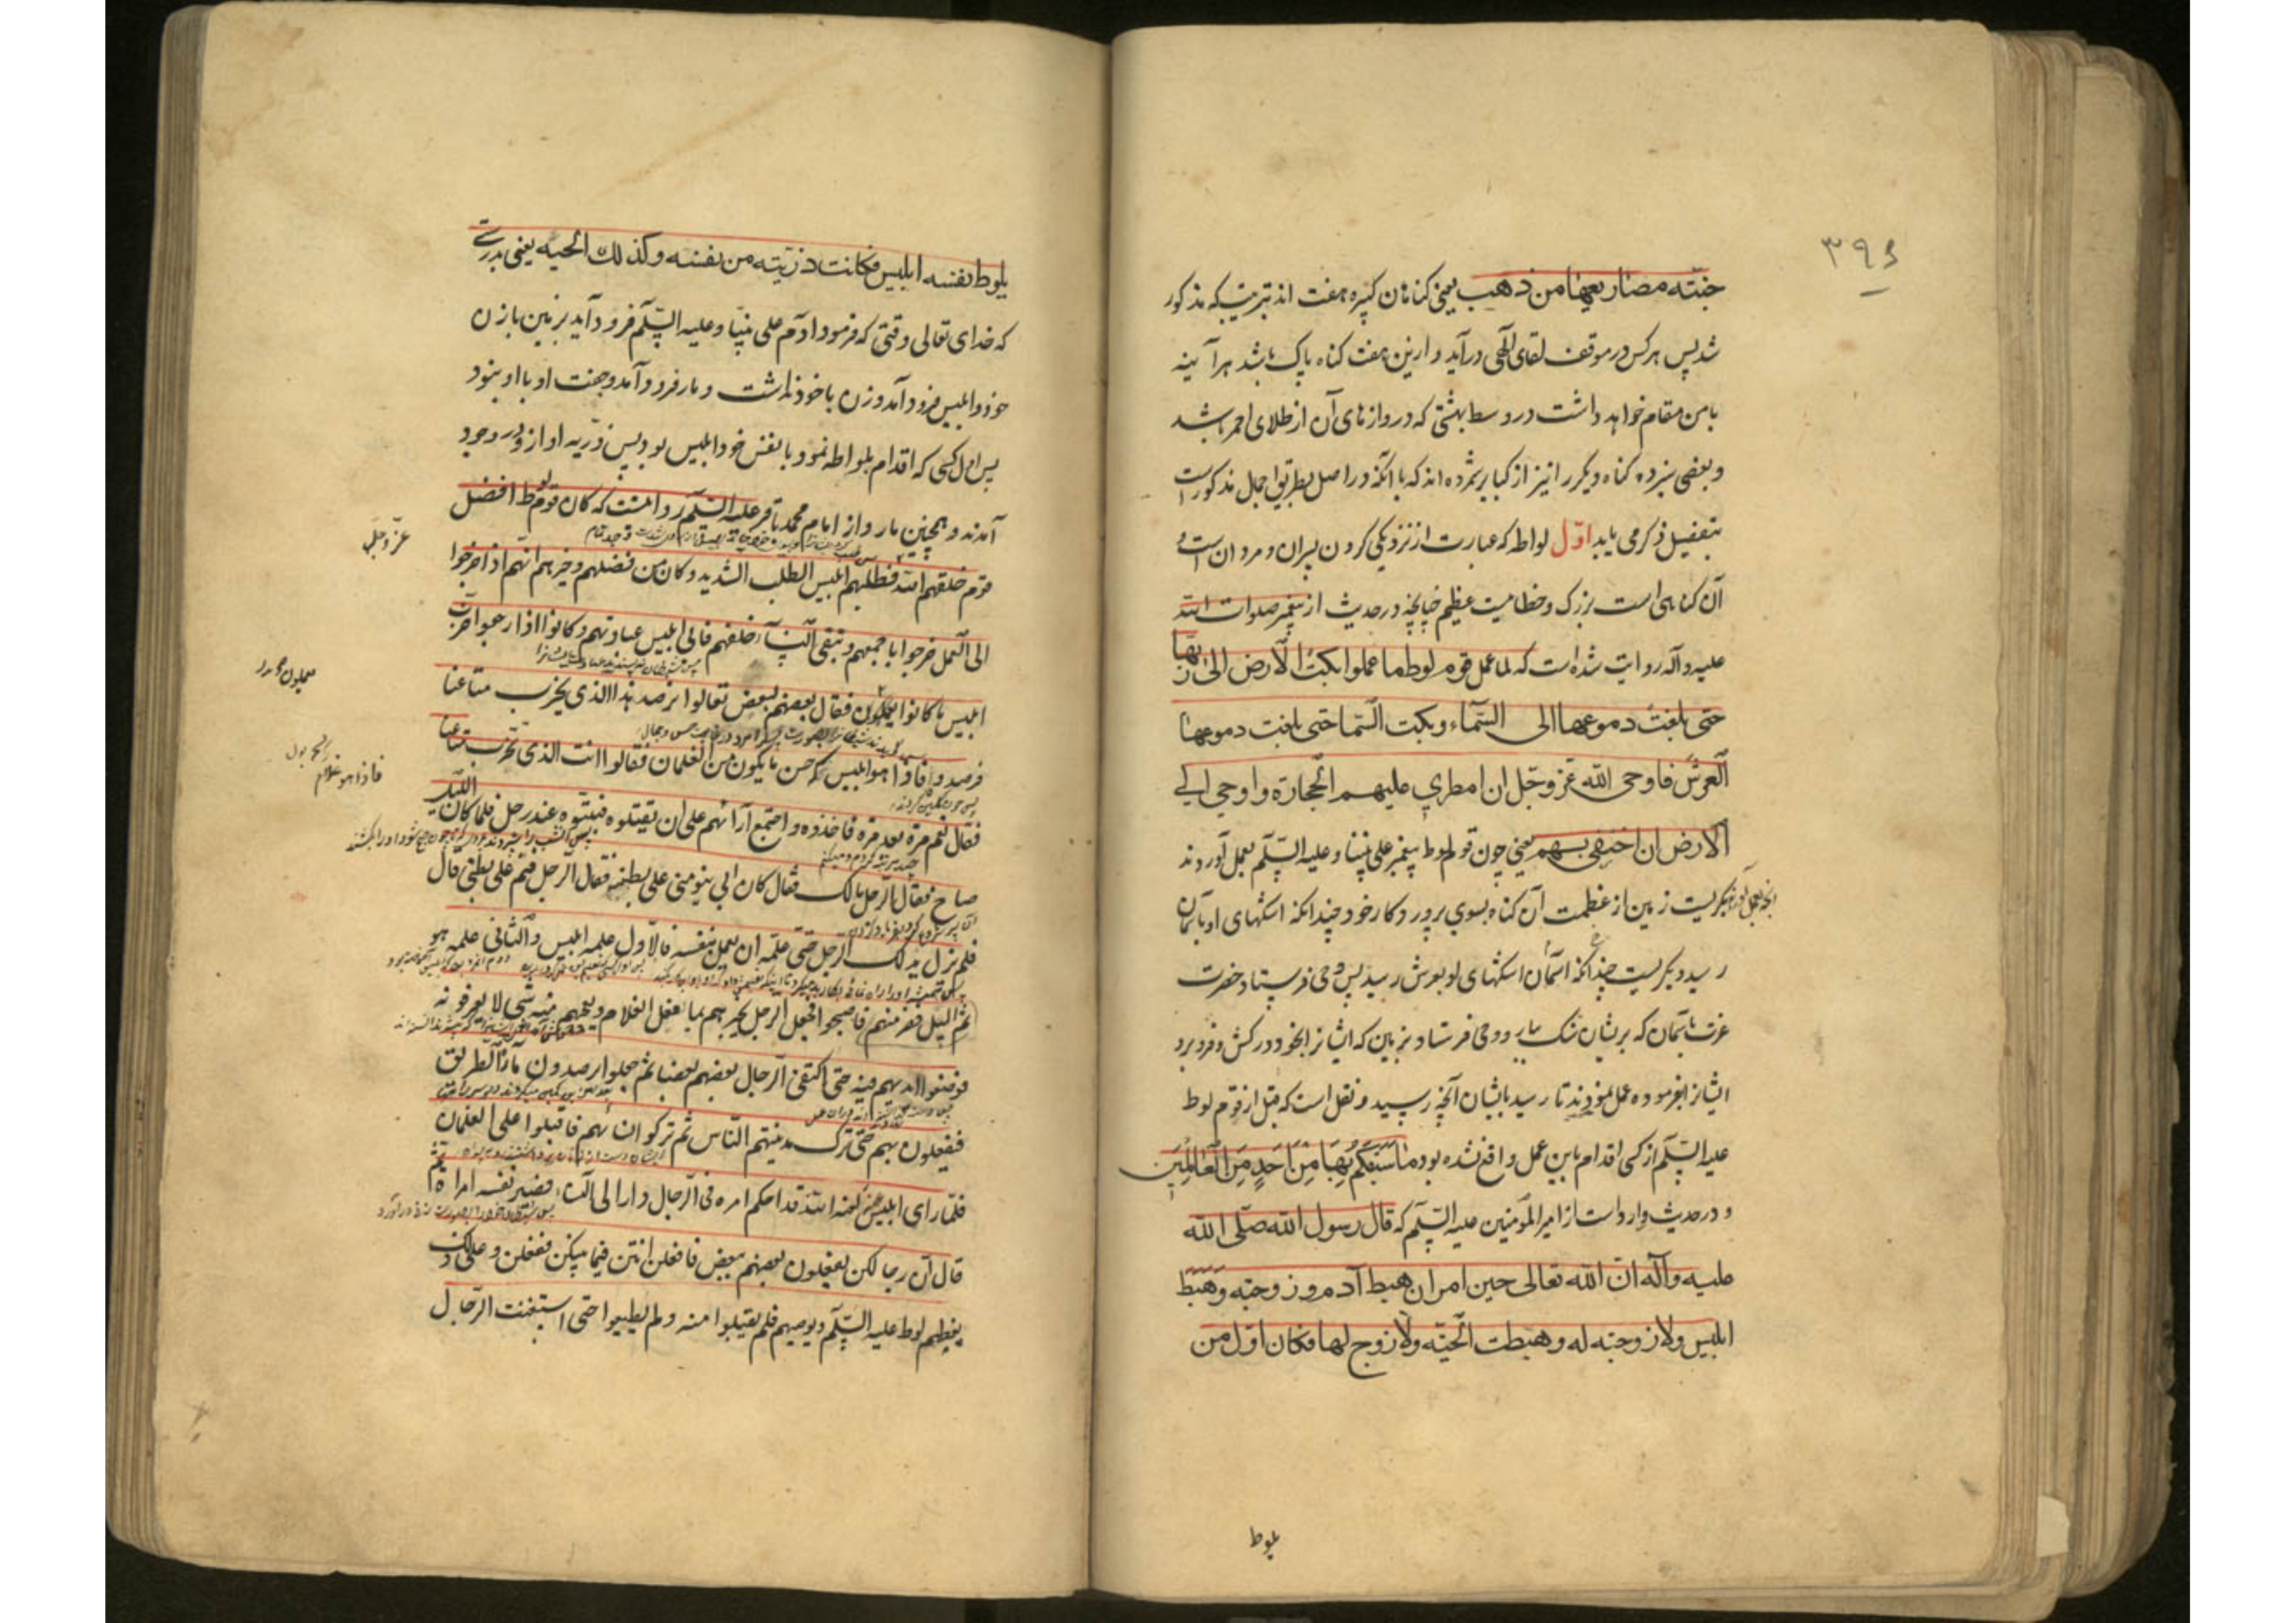 ۳۹۶
جنته مصاریعها من ذهب یعنی کناهان کبیره هفت اند بترتیبی که مذکور
شد پس هر کس در موقف لقای آلهی درآید و ازین هفت کناه پاک باشد هرآینه
با من مقام خواهد داشت در وسط بهشتی که دروازهای آن از طلای احمر باشد
و بعضی سیزده کناه دیکر را نیز از کبایر شمرده اند که با آنکه در اصل بطریق اجمال مذکور است
بتفصیل ذکر می یابد اوّل لواطه که عبارت از نزدیکی کردن پسران و مردان است و
آن کناهی است بزرک و خطاییست عظیم چنانچه در حدیث از پیغمبر صلوات الله
علیه و آله روایت شده است که لما عمل قوم لوط ما عملوا بکت الارض الی ربّها
حتی بلغت دموعها الی السّماء و بکت السّما حتی بلغت دموعها
العرش فاوحی الله عزّ وجلّ الی السماء ان امطري علیهم الحجارة و اوحی الي
الارض ان اخسفي بهم یعنی چون قوم لوط پیغمبر علی نبینا و علیه السّلم بعمل آوردند
آنچه بعمل آوردند بکریست زمین از عظمت آن کناه بسوی پروردکار خود چندانکه اشکهای او بآسمان
رسید و بکریست چندانکه آسمان اشکهای او بعرش رسید پس وحی فرستاد حضرت
عزت بآسمان که بریشان سنک ببار و وحی فرستاد بزمین که ایشانرا بخود درکش و فرو برد
ایشانرا بفرموده عمل نمودند تا رسید بایشان آنچه رسید و نقل است که قبل از قوم لوط
علیه السّلم از کسی اقدام باین عمل واقع نشده بود ما سَبَقَکُم بِهَا مِن اَحَدٍ مِنَ العَالَمِینَ
و در حدیث وارد است از امیر المؤمنین علیه السّلم که قال رسول الله صلّی الله
علیه و آله انّ الله تعالی حین امر ان هبط آدم و زوجته و هَبَطَ
ابلیس ولا زوجته له و هبطت الحیّه ولا زوج لها فکان اوّل من
یلوط
یلوط بنفسه ابلیس فکانت ذرّیته من نفسه و کذلك الحیه یعنی بدرستی
که خدای تعالی وقتی که فرمود آدم علی نبیّنا و علیه السّلم فرود آید بزمین با زن
خود و ابلیس فرود آمد و زن با خود نداشت و مار فرود آمد و جفت او با او نبود
پس اول کسی که اقدام بلواطه نمود با نفس خود ابلیس بود پس ذرّیه او از و در وجود
آمدند و همچنین مار و از امام محمد باقر علیه السّلم روایتست که کان قوم لوط افضل
قوم خلقهم الله فطلبهم ابلیس الطلب الشدید و کان من فضلهم و خیرهم انّهم اذا خرجوا
عزّ و جلّ
الی العمل خرجوا باجمعهم و تبقی النساء خلفهم فاتی ابلیس عبادتهم و کانوا اذا رجعوا خرّب
ابلیس ما کانوا یعملون فقال بعضهم لبعض تعالوا نرصد هذا الذی یخرب متاعنا
فرصدوه فاذا هو ابلیس کاحسن ما یکون من الغلمان فقالوا انت الذی تخرّب متاعنا
فاذا هو غلام
فقال نعم مرة بعد مرة فاخذوه و اجتمع آرائهم علی ان یقتلوه فبیّتوه عند رجل فلما کان اللیل
صاح فقال الرجل مالک فقال کان ابی ینومنی علی بطنه فقال الرجل فنم علی بطنی قال
فلم یزل یدلک الرجل حتی علّمه ان یعمل بنفسه فالاول علمه ابلیس و الثانی علمه هو
ثم انسل ففر منهم فاصبحوا فجعل الرجل یخبرهم بما فعل الغلام و یعجبهم منه شیء لا یعرفونه
فوضعوا ایدیهم فیه حتی اکتفی الرجال بعضهم بعضا ثم جعلوا یرصدون مارّة الطریق
فیفعلون بهم حتی ترک مدینتهم الناس ثم ترکوا نسائهم فاقبلوا علی الغلمان
فلمّا رای ابلیس لعنه الله قد احکم امره فی الرّجال دار الی النساء فصیر نفسه امراة ثمّ
قال انّ رجالکن یفعلون بعضهم ببعض فافعلن انتن فیما بینکن ففعلن و علی ذلک
یعظهم لوط علیه السّلم و یوصیهم فلم یقبلوا منه و لم یطیعوا حتی استغنت الرّجال